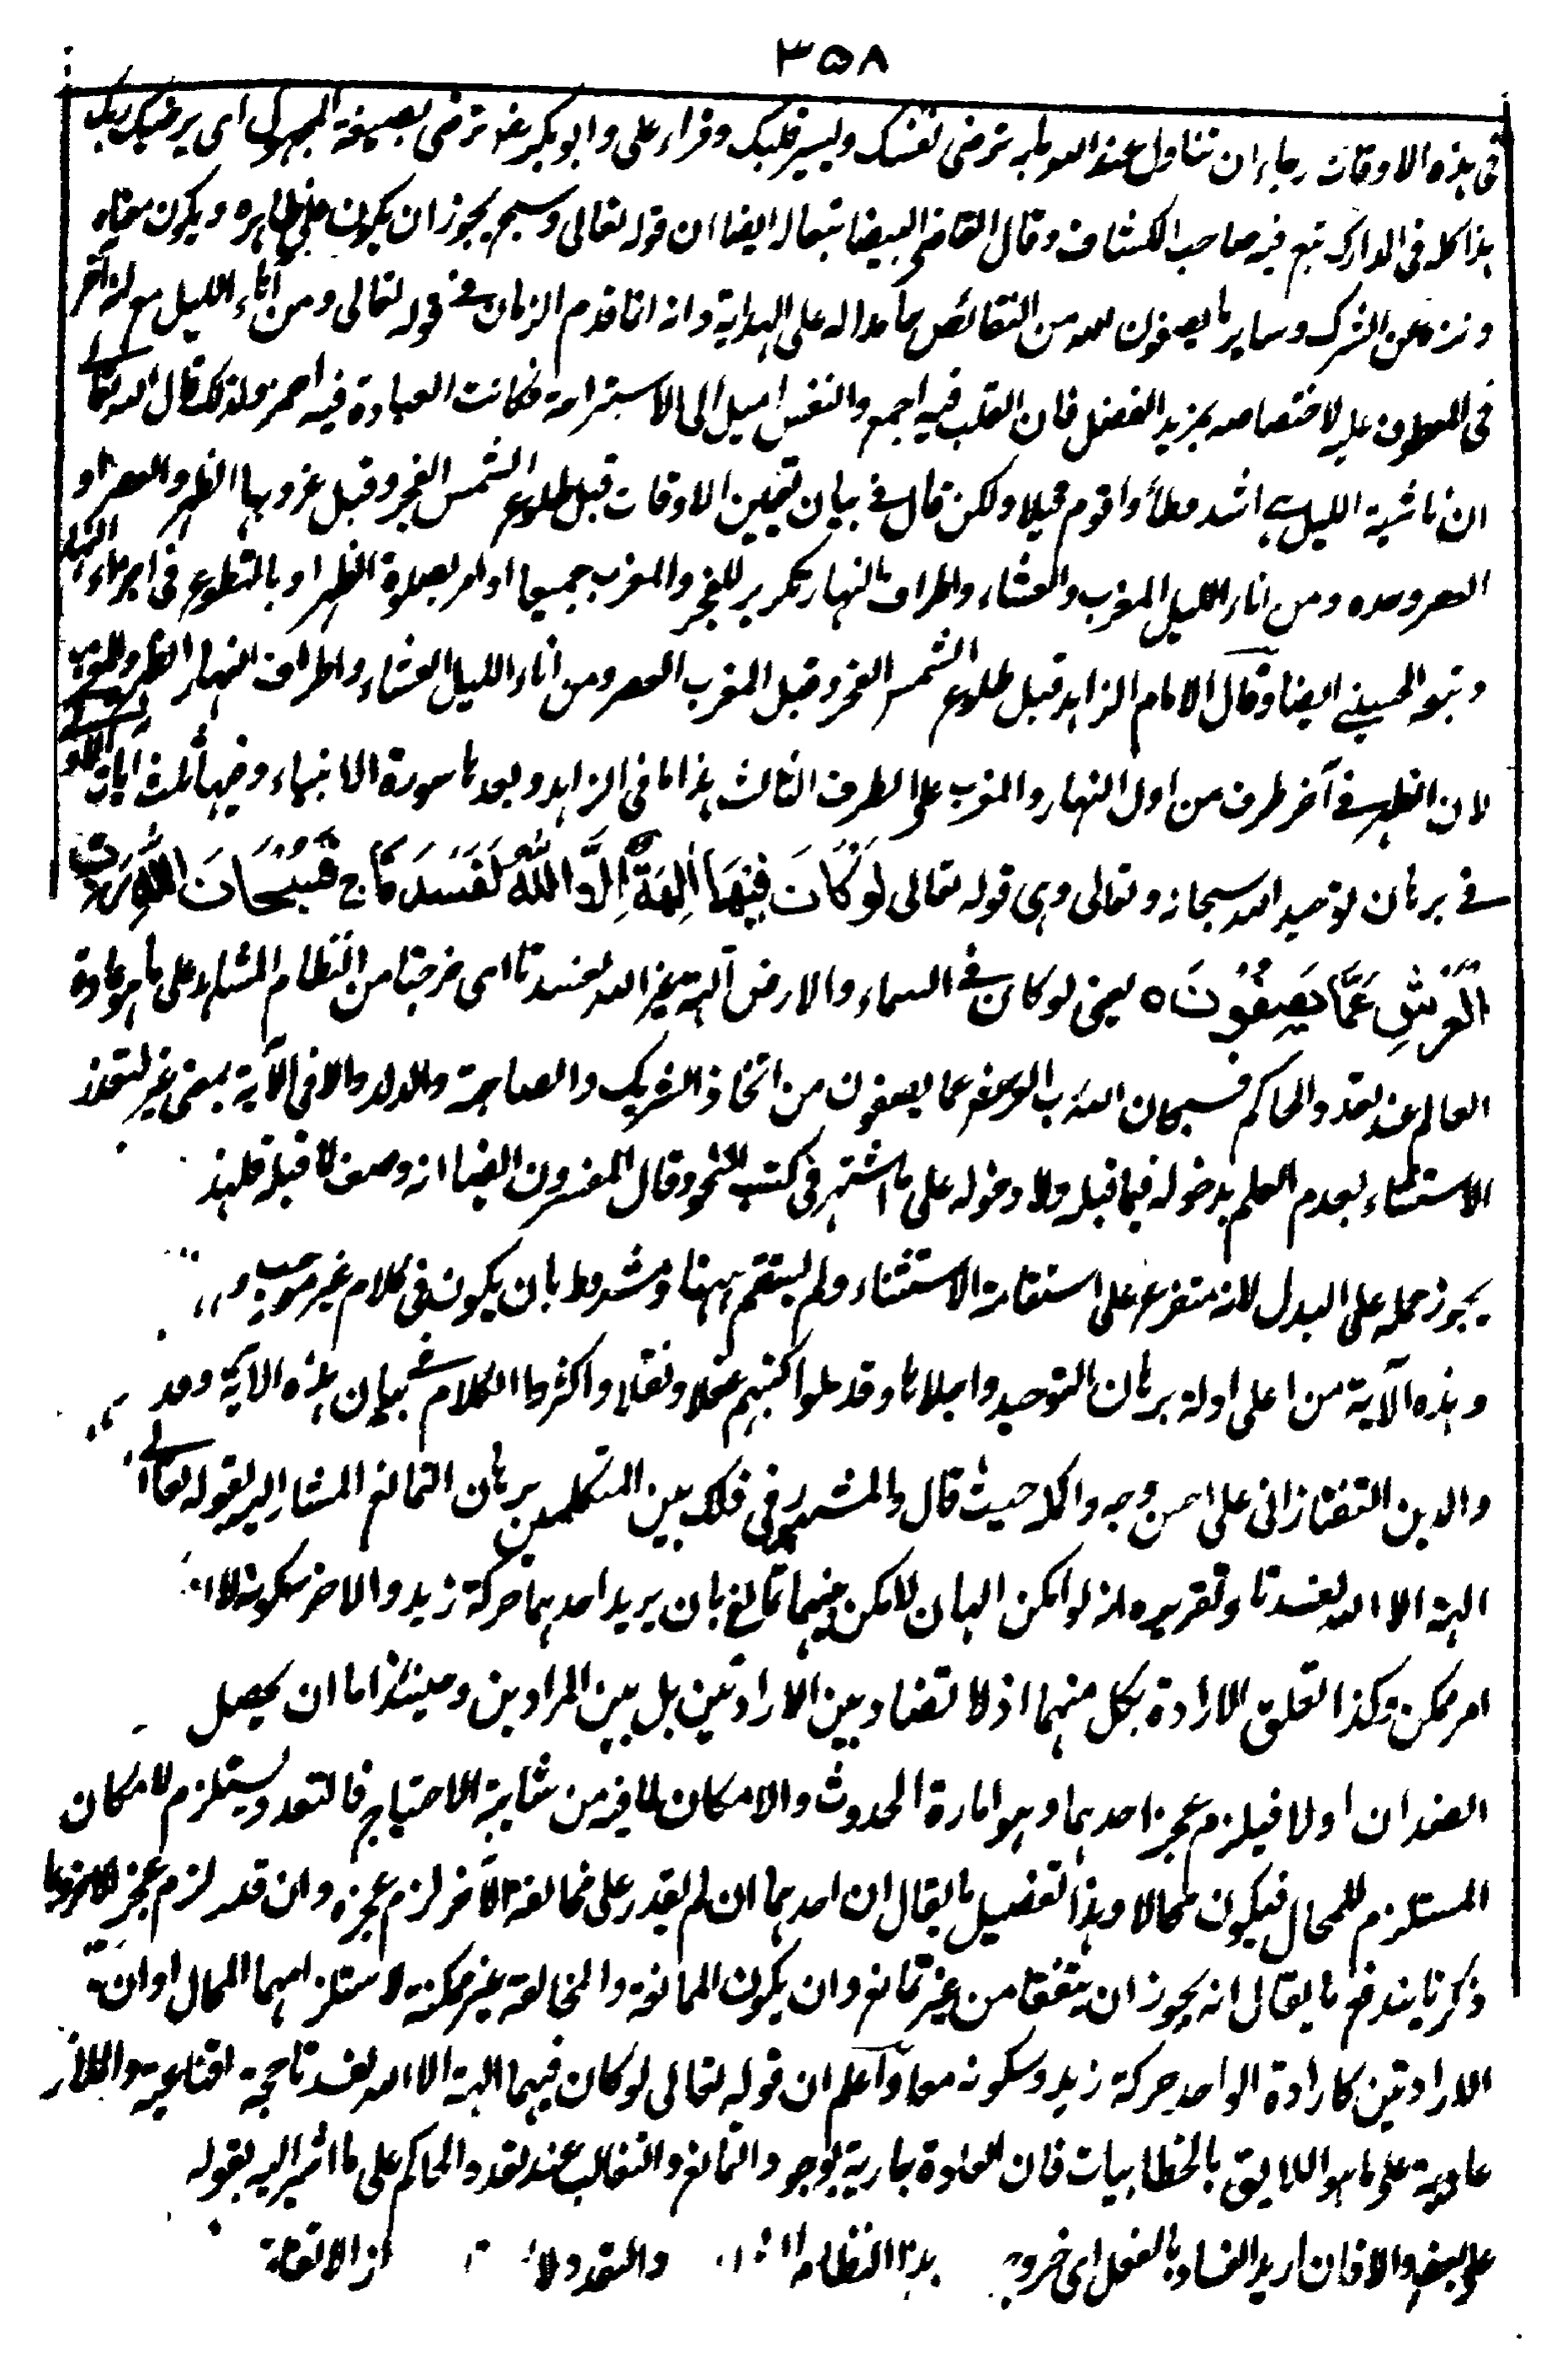 ٣٥٨
فى هذه الاوقات رجاء ان تناول عند الله ما به ترضى نفسك ويسر قلبك وقراء على وابو بكر ترضى بصيغة المجهول اى يرضيك ربك
هذا كله فى المدارك تبع فيه صاحب الكشاف وقال القاضى البيضا تبعا له ايضا ان قوله تعالى وسبح يجوز ان يكون على ظاهره ويكون معناه
ونزه عن الشرك وساير ما يصفون لله من النقائص حامدا له على الهداية وانه انما قدم الزمان فى قوله تعالى ومن آناء الليل مع انه آخر
فى المعطوف عليه لاختصاصه بمزيد الفضل فان القلب فيه اجمع والنفس اميل الى الاستراحة فكانت العبادة فيه احمز ولذلك قال الله تعالى
ان ناشية الليل هى اشد وطأ واقوم قيلا ولكن قال فى بيان تعيين الاوقات قبل طلوع الشمس الفجر وقبل غروبها الظهر والعصر او
العصر وحده ومن اناء الليل المغرب والعشاء واطراف النهار تكرير للفجر والمغرب جميعا او امر بصلوة الظهر او بالتطوع فى اجزاء النهار
وتبعه الحسينى ايضا وقال الامام الزاهد قبل طلوع الشمس الفجر وقبل المغرب العصر ومن اناء الليل العشاء واطراف النهار الظهر والمغرب
لان الظهر فى آخر طرف من اول النهار والمغرب على الطرف الثالث هذا ما فى الزاهد وبعدها سورة الانبياء وفيها ثلث ايات
فى برهان توحيد الله سبحانه وتعالى وهى قوله تعالى لَوْ كَانَ فِيْهِمَا اٰلِهَةٌ اِلَّا اللّٰهُ لَفَسَدَتَا ج فَسُبْحَانَ اللّٰهِ رَبِّ
الْعَرْشِ عَمَّا يَصِفُوْنَ ه يعنى لو كان فى السماء والارض آلهة غير الله لفسدتا اى خرجتا من النظام المشاهد على ما هو عادة
العالم عند تعدد الحاكم فسبحان الله رب العرش عما يصفون من اتخاذ الشريك والصاحبة والولد والا فى الآية بمعنى غير لتعذر
الاستثناء لعدم العلم بدخوله فيما قبله ولا دخوله على ما اشتهر فى كتب النحو وقال المفسرون ايضا انه وصف لما قبله فلهذ
يجوز حمله على البدل لانه متفرع على استقامة الاستثناء ولم يستقم ههنا ومشروط بان يكون فى كلام غير موجب و
وهذه الآية من اعلى ادلة برهان التوحيد واجلاها وقد ملوا كتبهم عقلا ونقلا واكثروا الكلام فى بيان هذه الآية
والدين التفتازانى على احسن وجه واكمله حيث قال والمشهور فى ذلك بين المتكلمين برهان التمانع المشار اليه بقوله تعالى
الهة الا الله لفسدتا وتقريره انه لو امكن الهان لامكن بينهما تمانع بان يريد احدهما حركة زيد والاخر سكونه لان
امر ممكن وكذا تعلق الارادة بكل منهما اذ لا تضاد بين الارادتين بل بين المرادين وحينئذ اما ان يحصل
الضدان او لا فيلزم عجز احدهما وهو امارة الحدوث والامكان لما فيه من شائبة الاحتياج فالتعدد يستلزم لامكان
المستلزم للمحال فيكون محالا وهذا تفصيل ما يقال ان احدهما ان لم يقدر على مخالفة الآخر لزم عجزه وان قدر لزم عجز الآخر وما
ذكرنا يندفع ما يقال انه يجوز ان يتفقا من غير تمانع وان يكون الممانعة والمخالفة غير ممكنة لاستلزامهما المحال او ان
الارادتين كارادة الواحد حركة زيد وسكونه معا واعلم ان قوله تعالى لو كان فيهما الهة الا الله لفسدتا حجة اقناعية والملاز
عادية على ما هو اللايق بالخطابيات فان العادة جارية بوجود التمانع والتغالب عند تعدد الحاكم على ما اشير اليه بقوله
على بعض والا فان اريد الفساد بالفعل اى خروج هذا النظام والتعدد لا